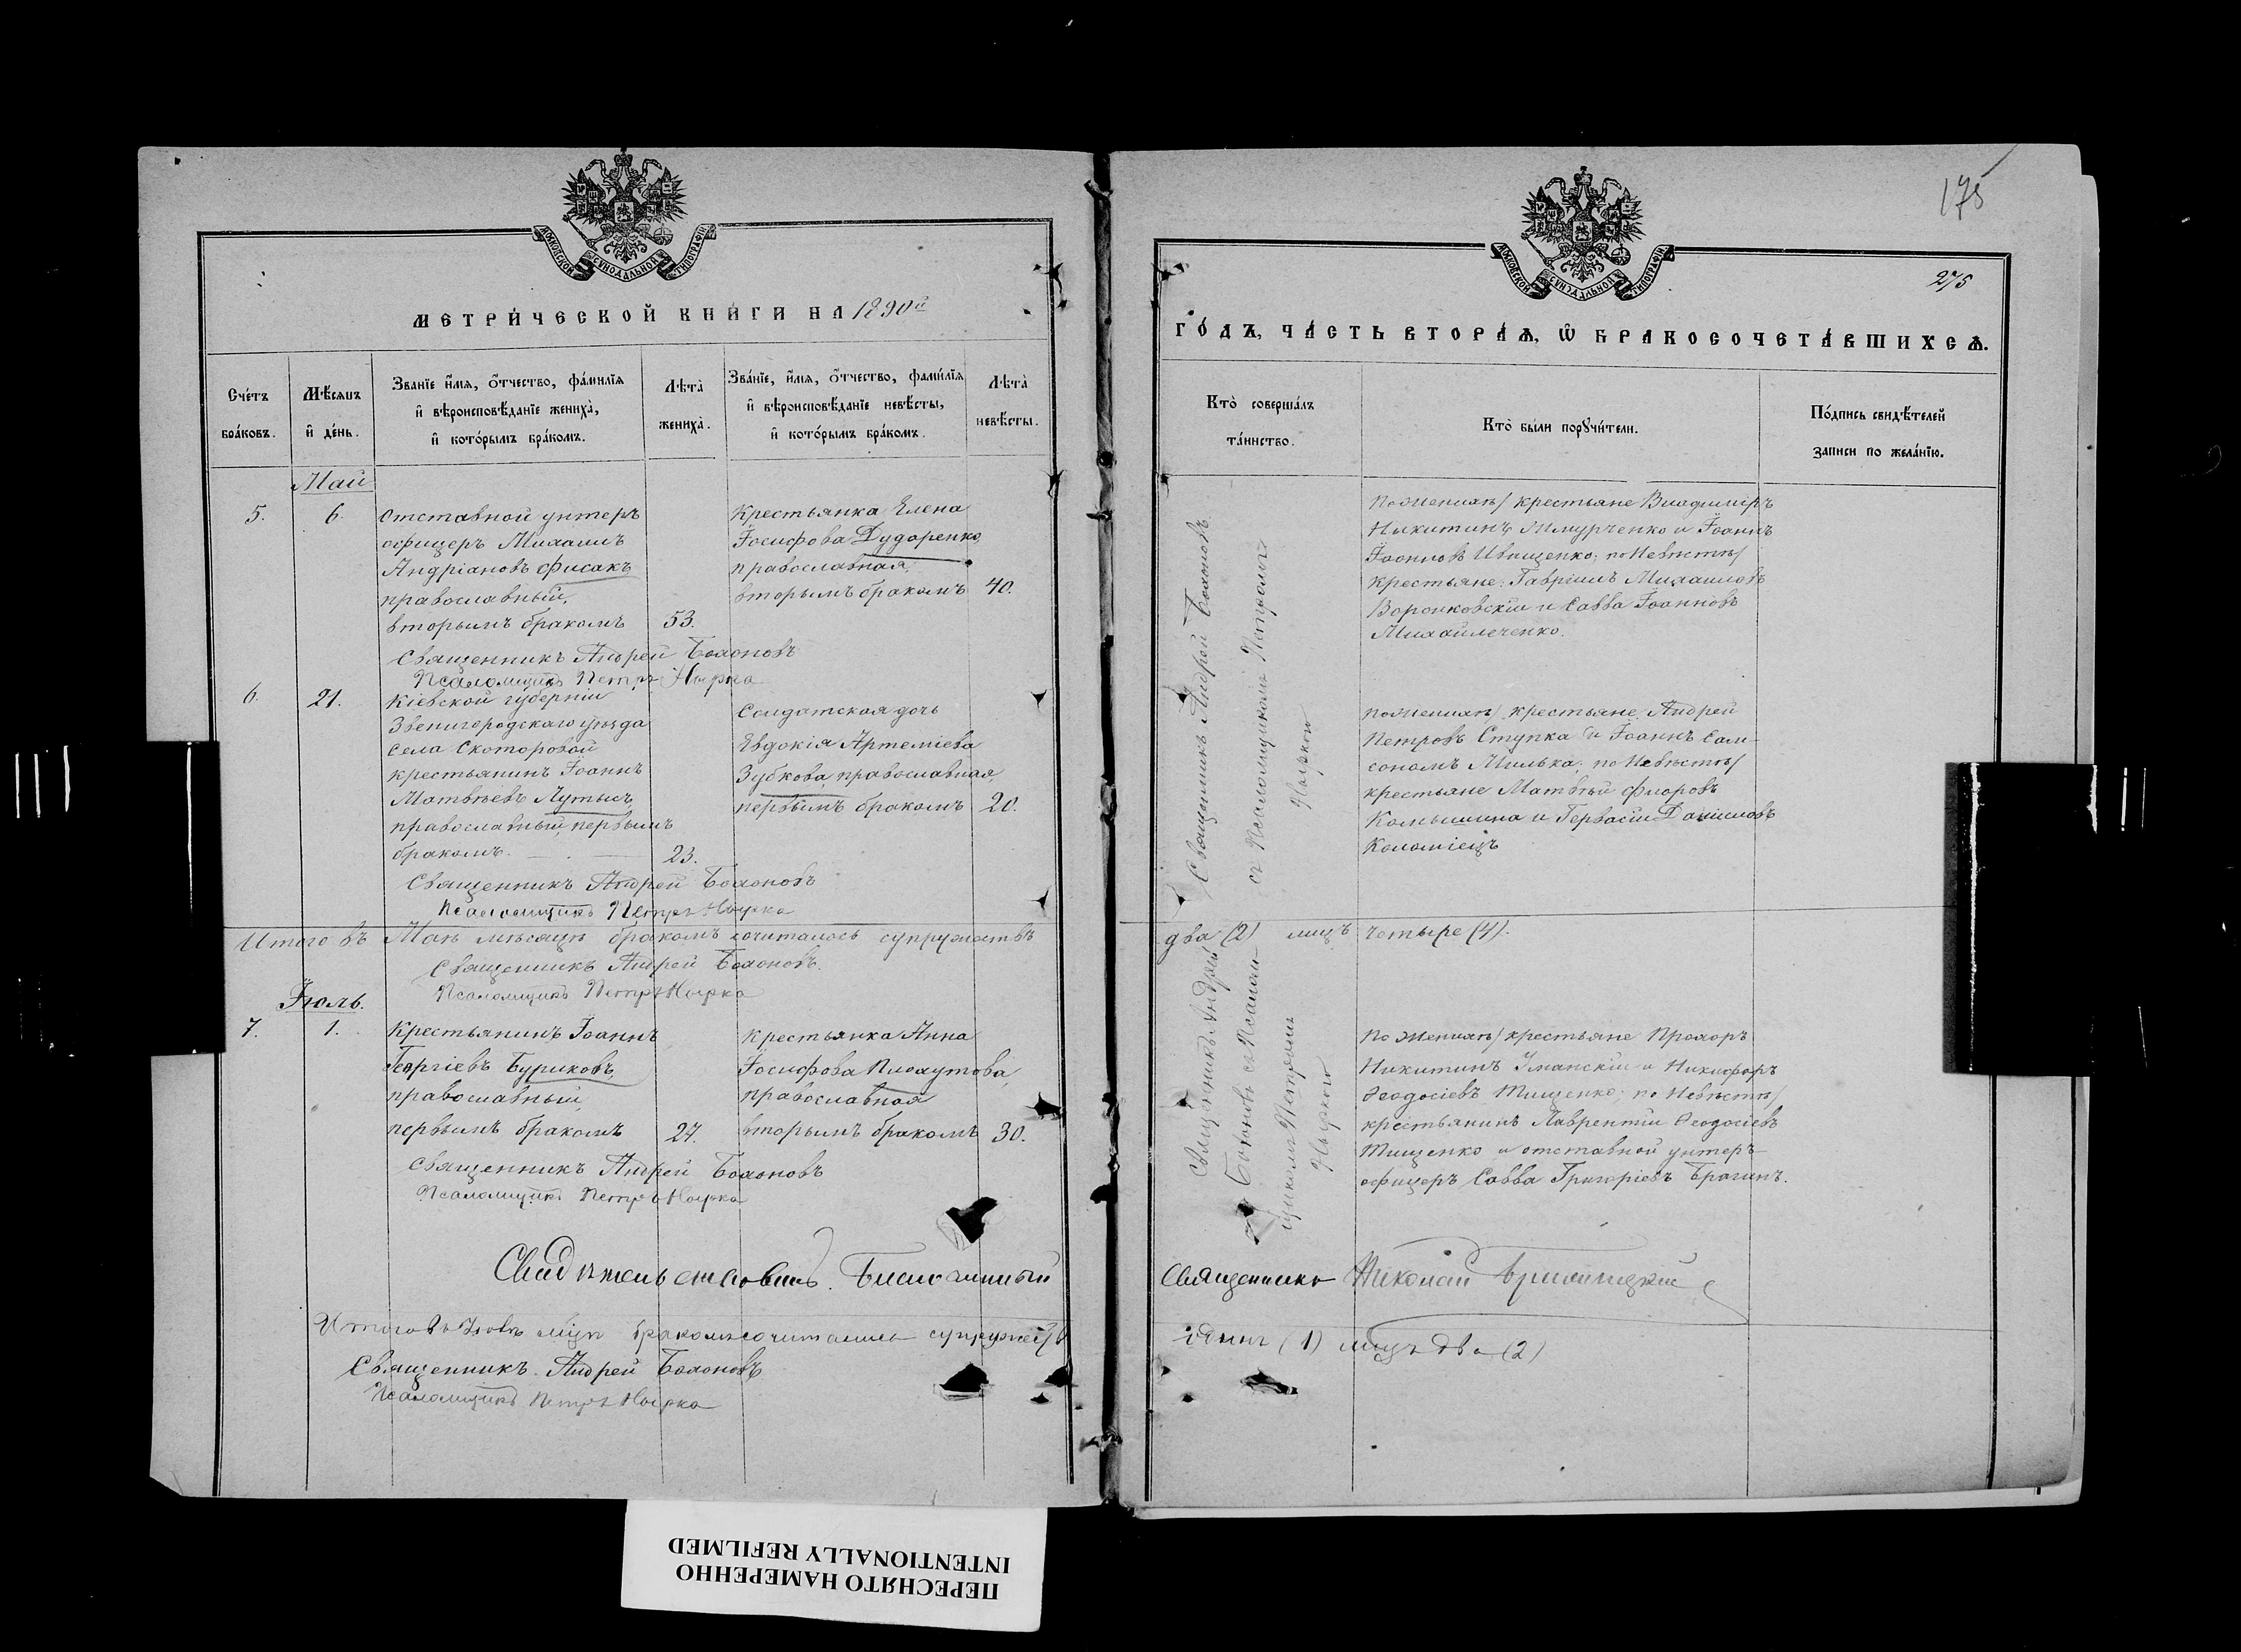 МОСКОВСКОЙ СѴНОДАЛЬНОЙ ТИПОГРАФІИ
МЕТРИ́ЧЕСКОЙ КНИ́ГИ НА 1890й
Сче́тъ бра́ковъ.
Мѣ́сяцъ и҆ де́нь.
Зва́нїе, и҆́мя, ѻ҆́тчество, фами́лїя
и҆ вѣроисповѣ́данїе жениха̀,
и҆ кото́рымъ бра́комъ.
Лѣта̀ жениха̀.
Зва́нїе, и҆́мя, ѻ҆́тчество, фами́лїя
и҆ вѣроисповѣ́данїе невѣ́сты,
и҆ кото́рымъ бра́комъ.
Лѣта̀ невѣ́сты.
Май
5.
6.
Отставной унтеръ
офицеръ Михаилъ
Андріановъ Фисакъ
православный,
вторымъ бракомъ
53.
Крестьянка Елена
Іосифова Дударенко
православная,
вторымъ бракомъ
40.
Священникъ Андрей Бахоновъ
Псаломщикъ Петръ Нырка
6.
21.
Кіевской губерніи
Звенигородскаго уѣзда
села Скоторовой
крестьянинъ Іоаннъ
Матвѣевъ Лутысъ,
православный, первымъ
бракомъ.
23.
Солдатская дочь
Евдокія Артеміева
Зубкова, православная,
первымъ бракомъ
20.
Священникъ Андрей Бахоновъ
Псаломщикъ Петръ Нырка
Итого въ Маѣ мѣсяцѣ бракомъ сочиталось супружествъ
Священникъ Андрей Бахоновъ.
Псаломщикъ Петръ Нырка
Іюль.
7.
1.
Крестьянинъ Іоаннъ
Георгіевъ Буриковъ,
православный,
первымъ бракомъ
27.
Крестьянка Анна
Іосифова Плохутова,
православная
вторымъ бракомъ
30.
Священникъ Андрей Бахоновъ
Псаломщикъ Петръ Нырка
Свидѣтельствовалъ. Благочинный
Итого въ Іюлѣ мѣсяцѣ бракомъ сочиталось супружествъ
Священникъ Андрей Бахоновъ
Псаломщикъ Петръ Нырка
175
МОСКОВСКОЙ СѴНОДАЛЬНОЙ ТИПОГРАФІИ
275
ГО́ДЪ, ЧА́СТЬ ВТОРА́Я, Ѽ БРАКОСОЧЕТА́ВШИХСЯ.
Кто̀ соверша́лъ
та́инство.
Кто̀ бы́ли порꙋчи́тели.
По́дпись свидѣ́телей
за́писи по жела́нїю.
Священникъ Андрей Бахоновъ
съ Псаломщикомъ Петромъ
Ныркой
По женихѣ/ крестьяне Владиміръ
Никитинъ Шмурченко и Іоаннъ
Іоанновъ Иващенко; по невѣстѣ/
крестьяне: Гавріилъ Михаиловъ
Воронковскій и Савва Іоанновъ
Михайличенко.
По женихѣ/ крестьяне: Андрей
Петровъ Ступка и Іоаннъ Сам-
соновъ Милька; по невѣстѣ/
крестьяне Матвѣй Флоровъ
Камышина и Гервасій Даниловъ
Коломіецъ
два (2) лицъ четыре (4).
Священникъ Андрей
Бахоновъ съ Псалом-
щикомъ Петромъ
Ныркою
По женихѣ/ крестьяне Прохоръ
Никитинъ Уманскій и Никифоръ
Ѳеодосіевъ Тищенко; по невѣстѣ/
крестьянинъ Лаврентій Ѳеодосіевъ
Тищенко и отставной унтеръ-
офицеръ Савва Григоріевъ Брагинъ.
Священникъ Николай
одинъ (1) лицъ два (2)
ПЕРЕСНЯТО НАМЕРЕННО
INTENTIONALLY REFILMED